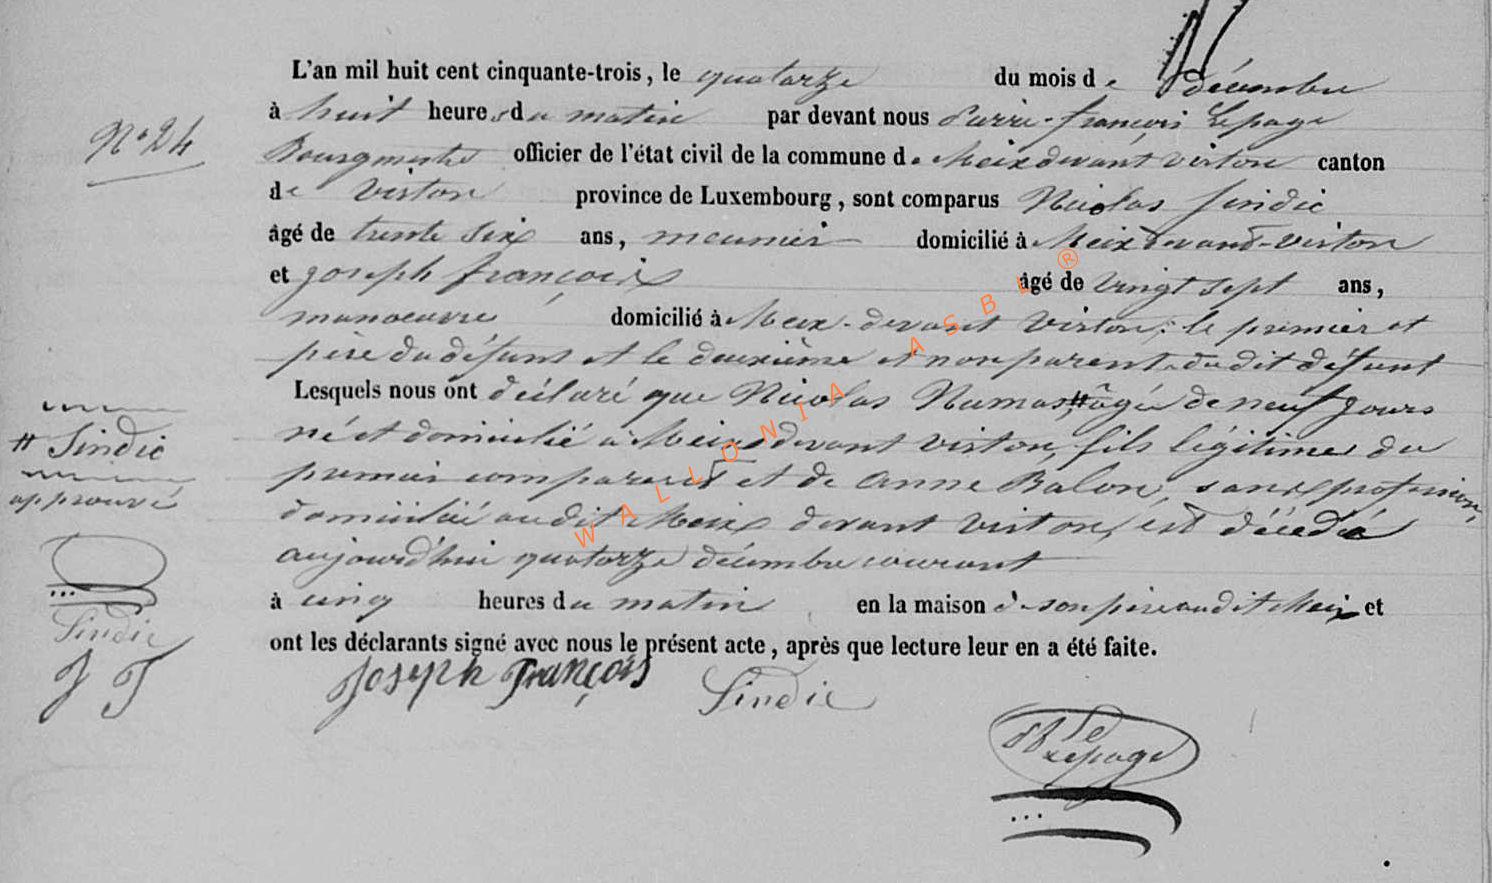 L'an mil huit cent cinquante-trois, le quatorze du mois de décembre
à huit heures du matin par devant nous Pierre-françois Lepage
N° 24
Bourgmestre officier de l'état civil de la commune de Meix devant virton canton
de virton province de Luxembourg, sont comparus Nicolas Sindic
âgé de trente six ans, meunier domicilié à Meix devant-virton
et joseph françois âgé de vingt sept ans,
manoeuvre domicilié à Meix-devant Virton; le premier et
père du défunt et le deuxième et non parent dudit défunt
Lesquels nous ont déclaré que Nicolas Numas # âgé de neuf jours
né et domicilié à Meix devant virton, fils légitime du
# Sindic
premier comparant et de Anne Balon, sans profession,
approuvé
domiciliée audit Meix devant Virton, est décédé
aujourd'hui quatorze décembre courant
à cinq heures du matin en la maison de son père audit Meix et
Sindic
ont les déclarants signé avec nous le présent acte, après que lecture leur en a été faite.
J F
Joseph François Sindic
Lepage
WALLONIA ASBL ®